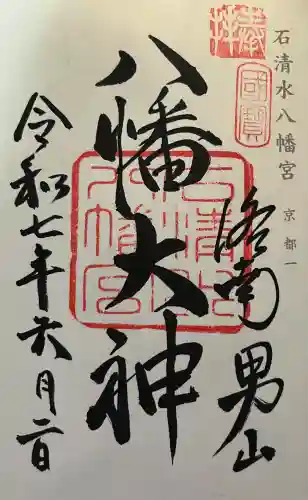 奉拝
國寶
石清水八幡宮
京都一
洛南男山
八幡大神
石清水八幡宮
令和七年六月二日